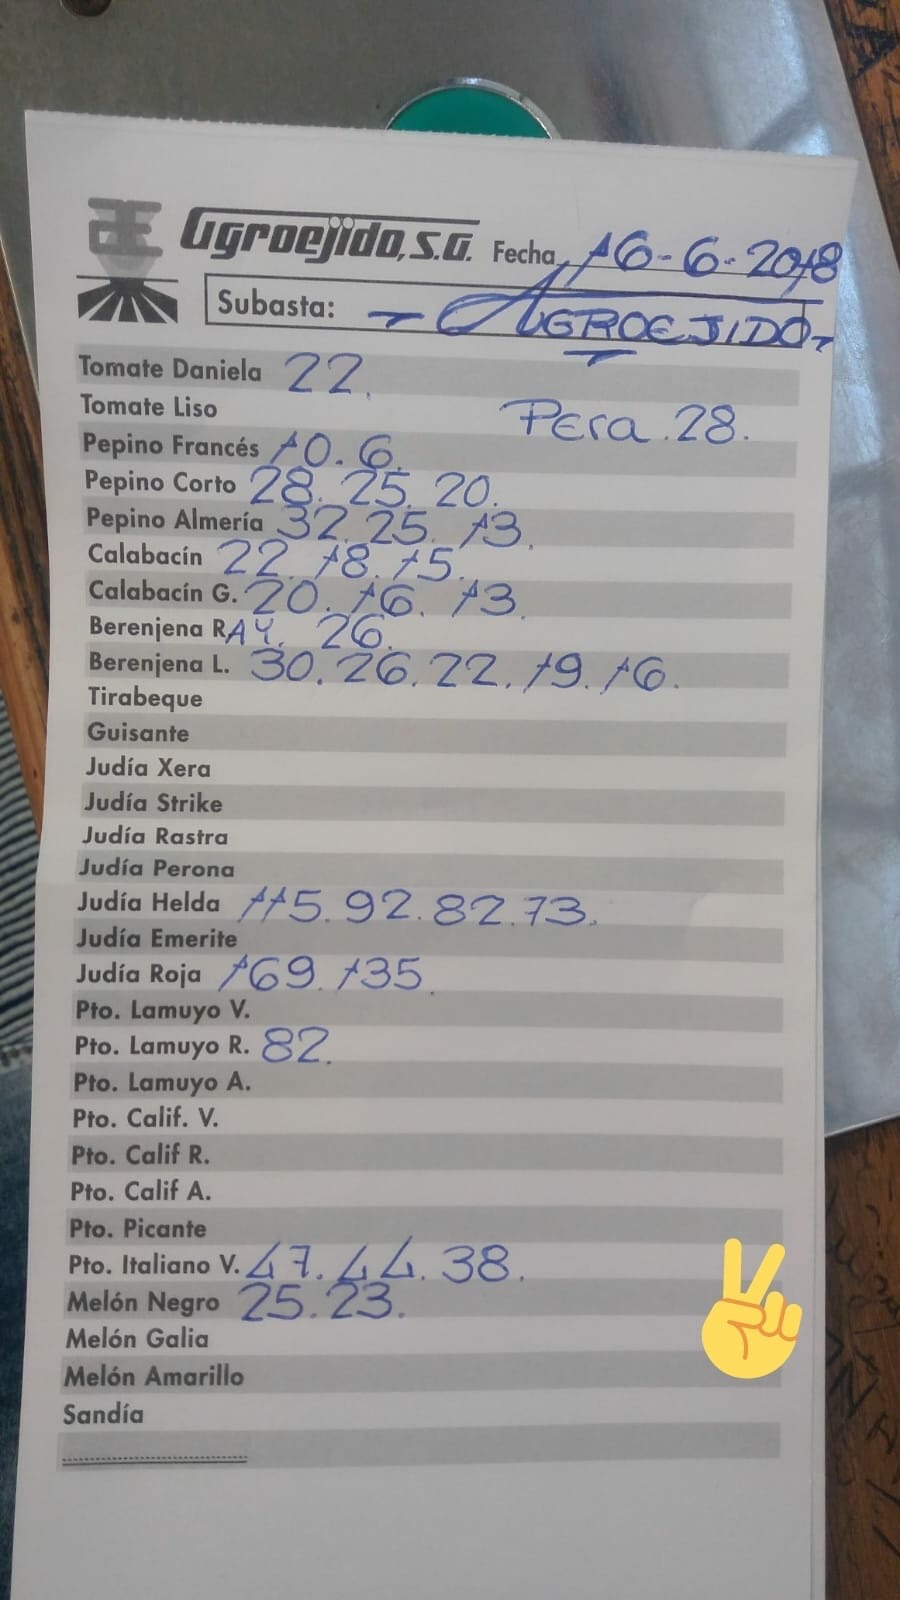 Agroejido, S.A. Fecha 16-6-2018
Subasta: - AGROEJIDO -
Tomate Daniela 22.
Tomate Liso Pera. 28.
Pepino Francés 10. 6.
Pepino Corto 28. 25. 20.
Pepino Almería 32. 25. 13.
Calabacín 22. 18. 15.
Calabacín G. 20. 16. 13.
Berenjena RAY. 26.
Berenjena L. 30. 26. 22. 19. 16.
Tirabeque
Guisante
Judía Xera
Judía Strike
Judía Rastra
Judía Perona
Judía Helda 115. 92. 82. 73.
Judía Emerite
Judía Roja 169. 135.
Pto. Lamuyo V.
Pto. Lamuyo R. 82.
Pto. Lamuyo A.
Pto. Calif. V.
Pto. Calif R.
Pto. Calif A.
Pto. Picante
Pto. Italiano V. 47. 44. 38.
Melón Negro 25. 23.
Melón Galia
Melón Amarillo
Sandía